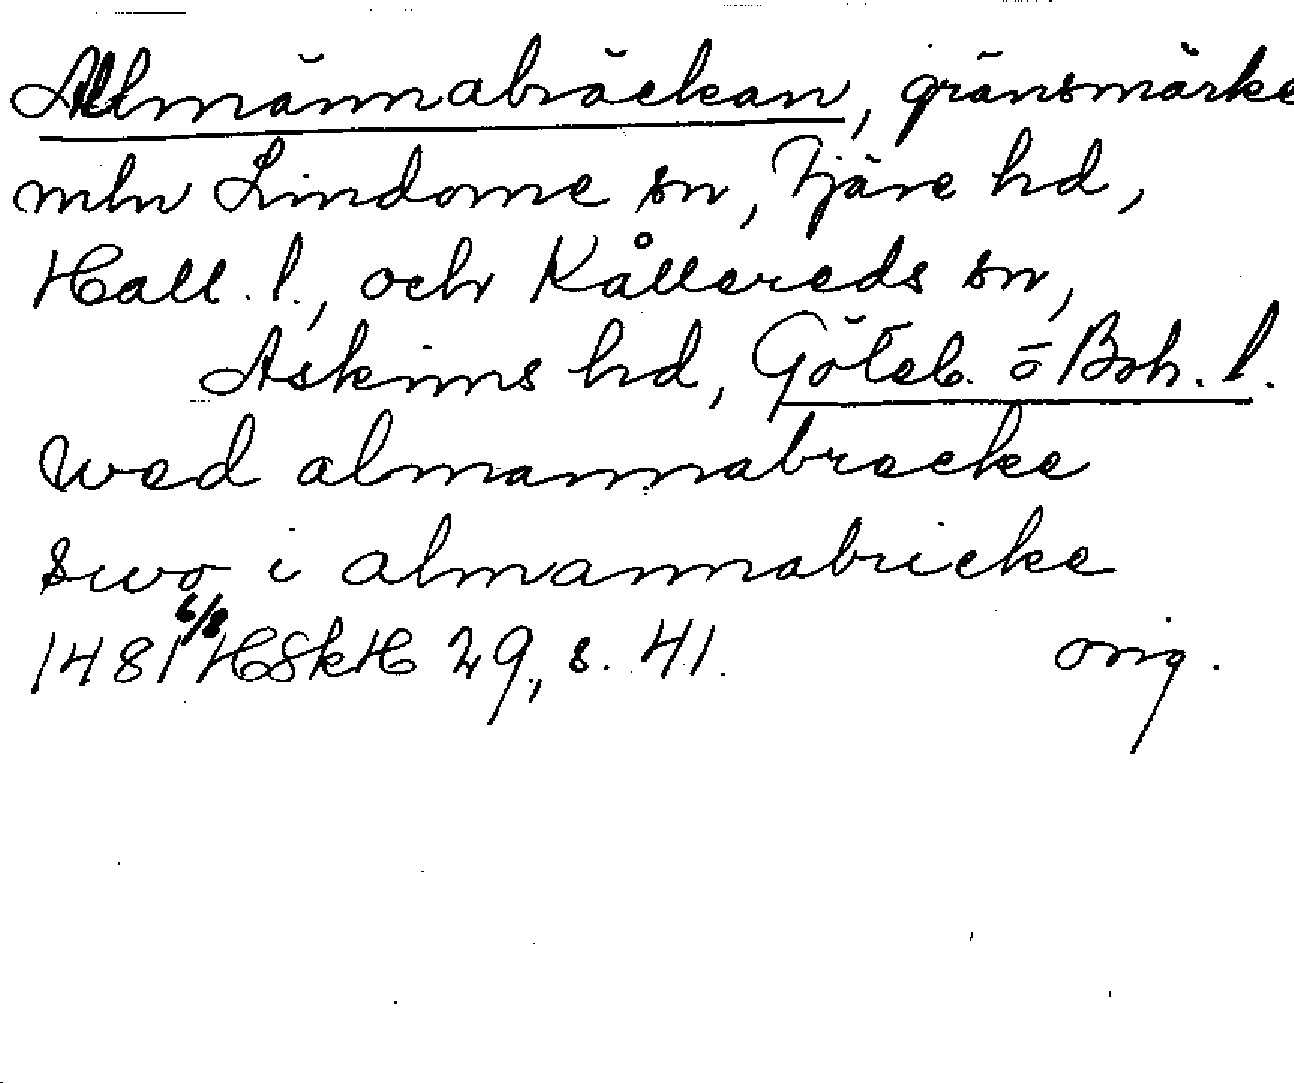 Allmännabräckan, gränsmärke
mln Lindome sn, Fjäre hd,
Hall. l., och Kållereds sn,
Askims hd, Göteb. o Boh. l.
wed almannabrecke
swo i almannabricke
1481 6/8 HSkH 29, s. 41. orig.